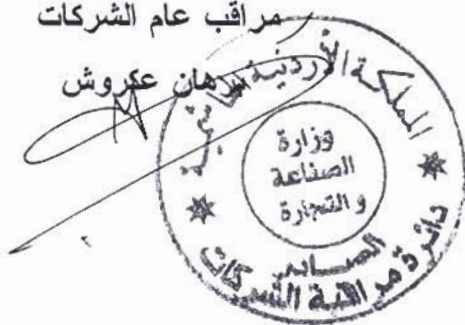 مراقب عام الشركات
برهان عكروش
المملكة الأردنية الهاشمية
وزارة
الصناعة
والتجارة
دائرة مراقبة الشركات